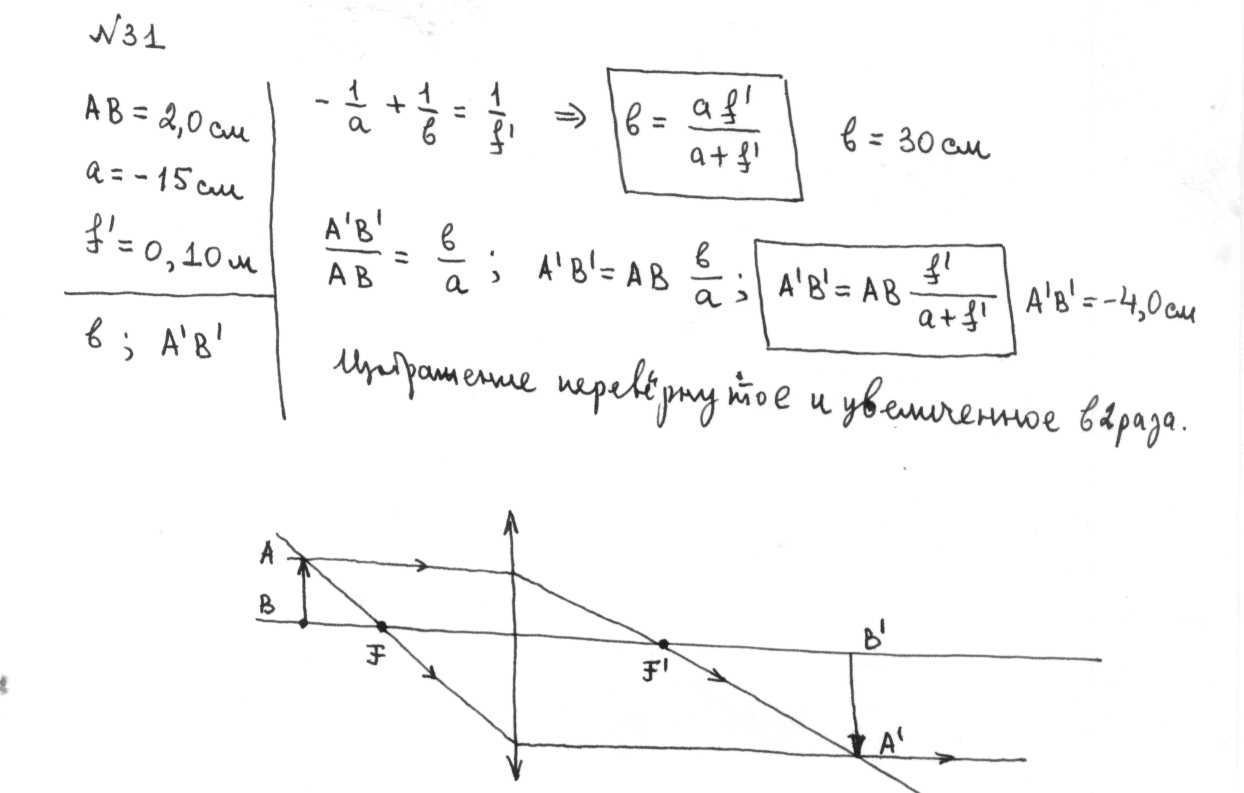 №31
AB = 2,0 см
a = -15 см
f' = 0,10 м
в ; A'B'
- 1/a + 1/в = 1/f' ⇒ в = a f' / (a + f') в = 30 см
A'B'/AB = в/a ; A'B' = AB в/a ; A'B' = AB f'/(a + f') A'B' = -4,0 см
Изображение перевёрнутое и увеличенное в 2 раза.
A
B
F
F'
B'
A'